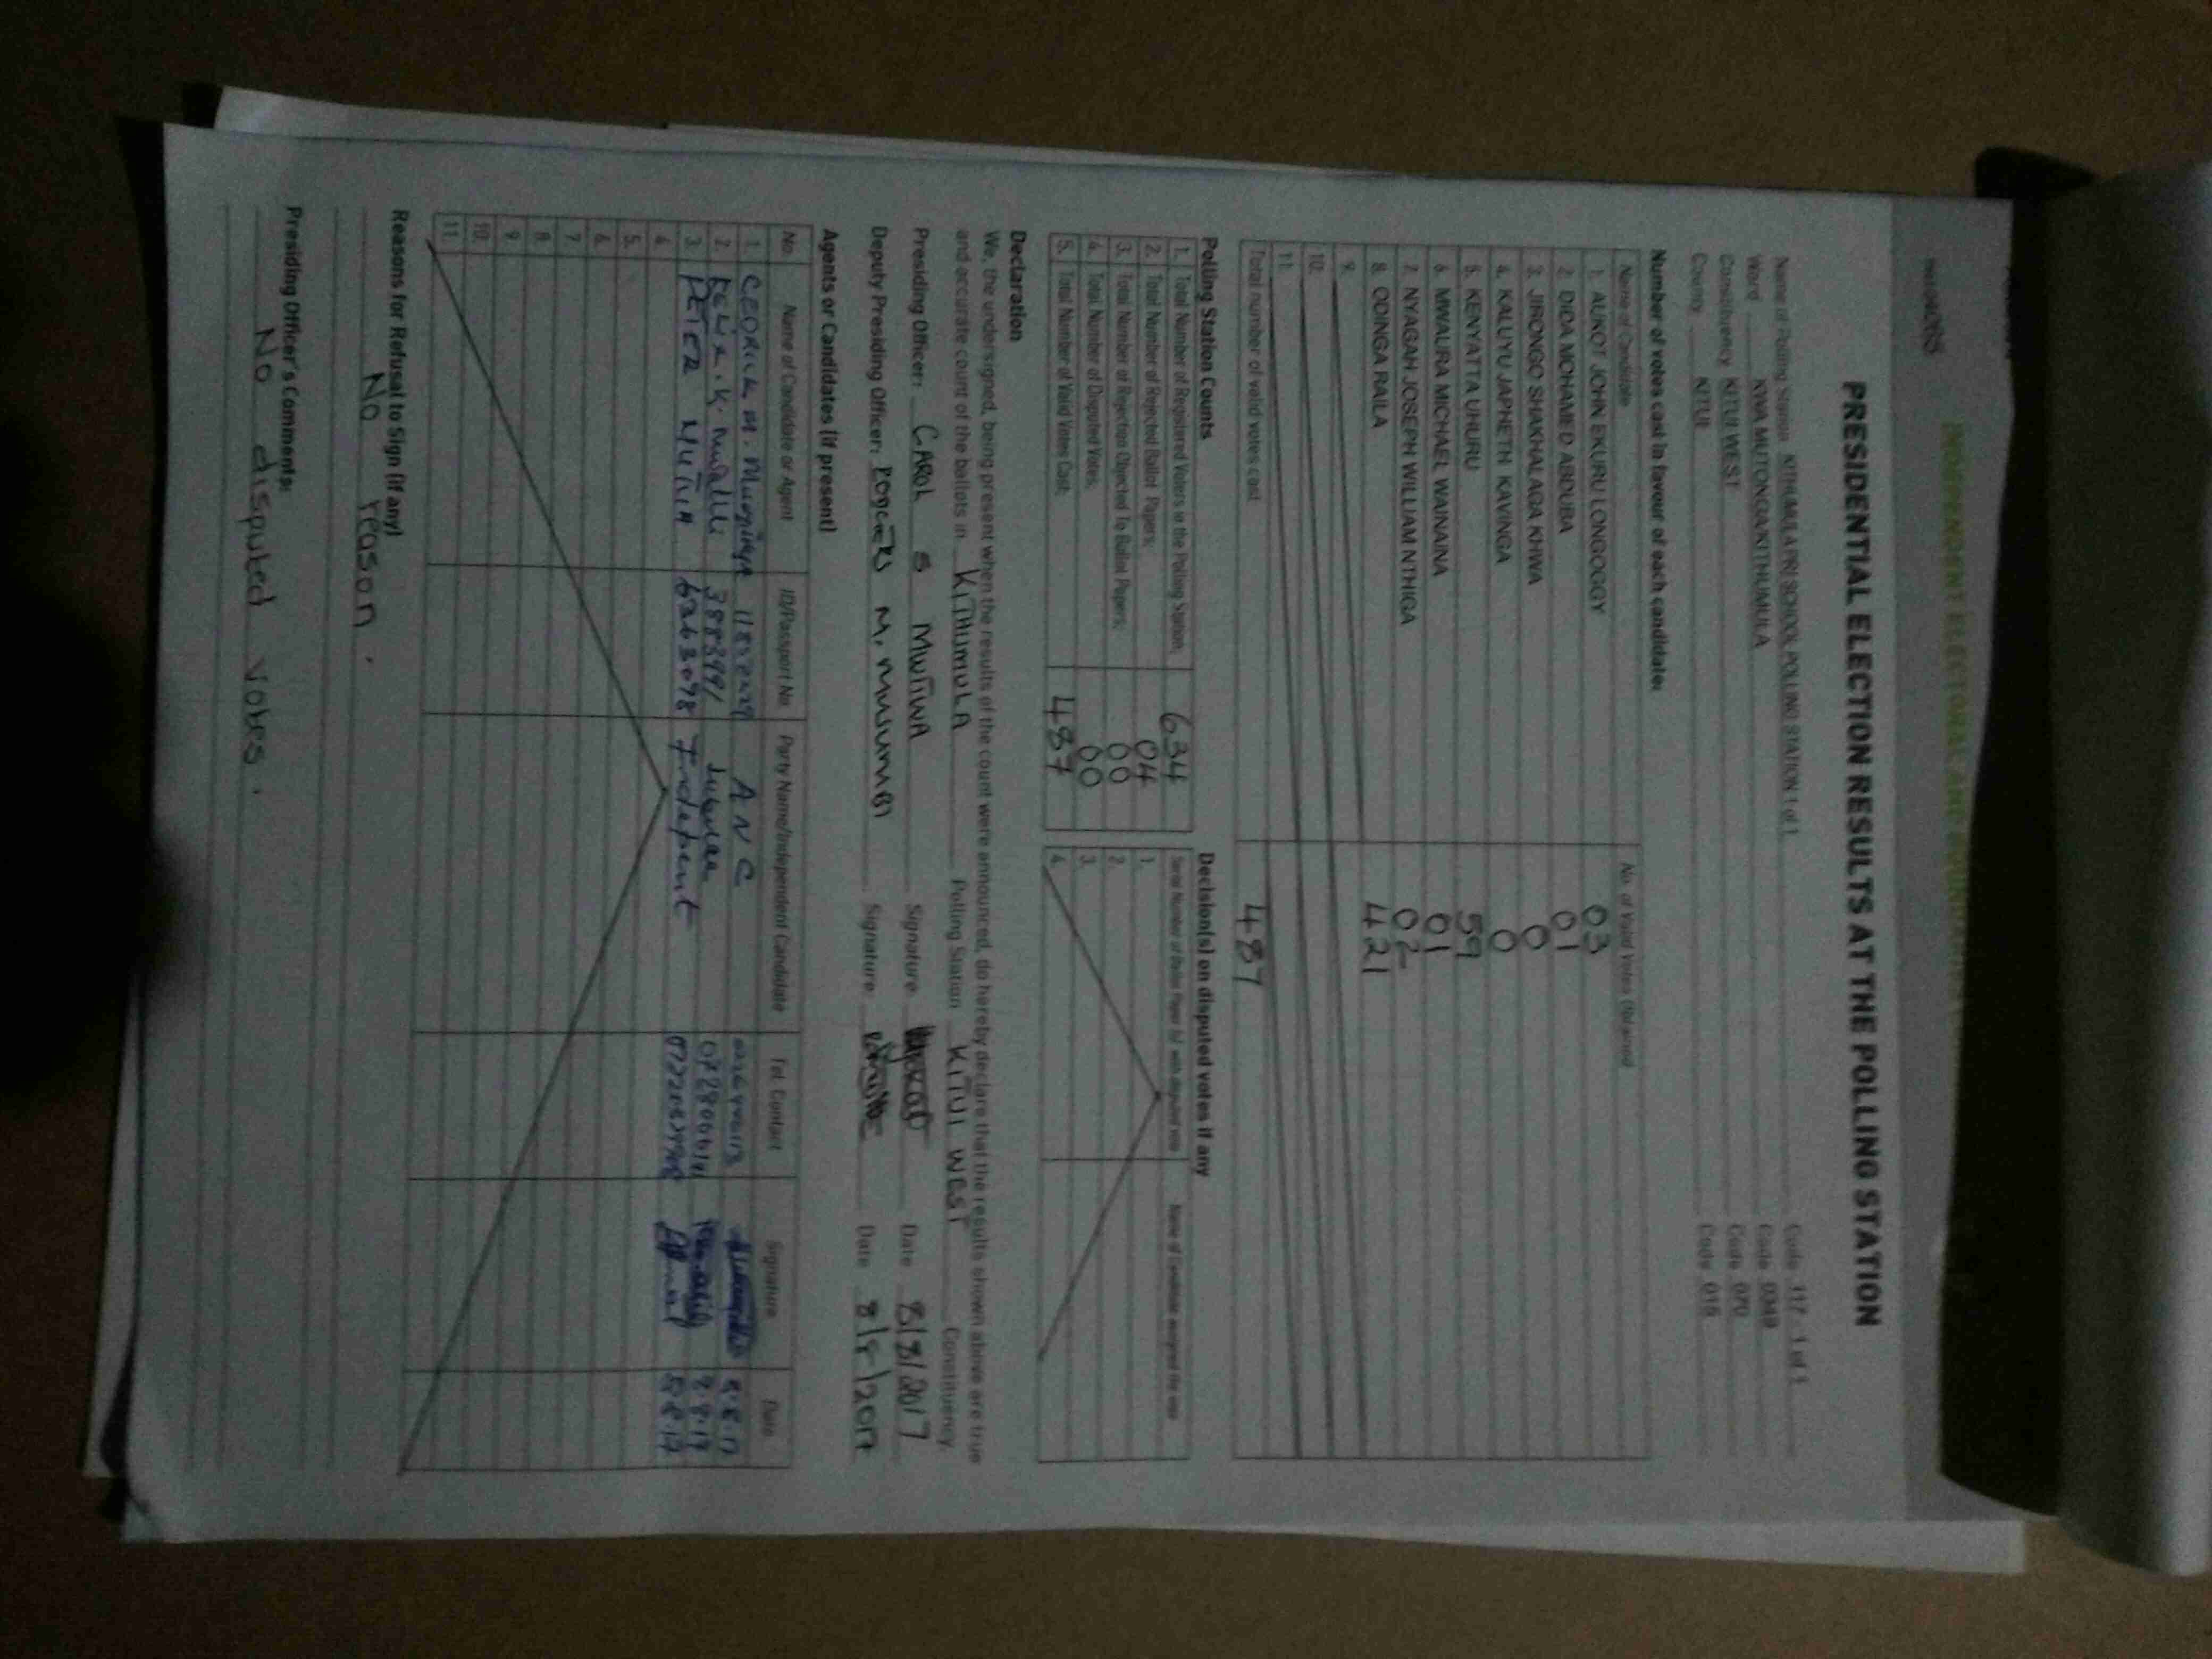 INDEPENDENT ELECTORAL AND
PRESIDENTIAL ELECTION RESULTS AT THE POLLING STATION
Name of Polling Station KITHUMULA PRI SCHOOL POLLING STATION 1 of 1 Code 117 1 of 1
Ward KWA MUTONGA/KITHUMULA Code 0349
Constituency KITUI WEST Code 070
County KITUI Code 015
Number of votes cast in favour of each candidate:
Name of Candidate No. of Valid Votes Obtained
1. AUKOT JOHN EKURU LONGOGGY 03
2. DIDA MOHAMED ABDUBA 01
3. JIRONGO SHAKHALAGA KHWA 0
4. KALUYU JAPHETH KAVINGA 0
5. KENYATTA UHURU 59
6. MWAURA MICHAEL WAINAINA 01
7. NYAGAH JOSEPH WILLIAM NTHIGA 02
8. ODINGA RAILA 421
9.
10.
11.
Total number of valid votes cast 487
Polling Station Counts
1. Total Number of Registered Voters in the Polling Station; 634
2. Total Number of Rejected Ballot Papers; 04
3. Total Number of Rejection Objected To Ballot Papers; 00
4. Total Number of Disputed Votes; 00
5. Total Number of Valid Votes Cast; 487
Decision(s) on disputed votes if any
1.
2.
3.
4.
Declaration
We, the undersigned, being present when the results of the count were announced, do hereby declare that the results shown above are true
and accurate count of the ballots in KITHUMULA Polling Station KITUI WEST Constituency
Presiding Officer: CAROL S MWITWA Signature Date 8/8/2017
Deputy Presiding Officer: M. MUSUMBI Signature Date 8/8/2017
Agents or Candidates (if present)
No. Name of Candidate or Agent ID/Passport No. Party Name/Independent Candidate Tel. Contact Signature Date
1. CEDRICK M. ANC 8.8.17
2. FELIX .K. Jubilee 8.8.17
3. PETER MUTUA Independent 8.8.17
4.
5.
6.
7.
8.
9.
10.
11.
Reasons for Refusal to Sign (if any)
No reason.
Presiding Officer's Comments:
No disputed votes.